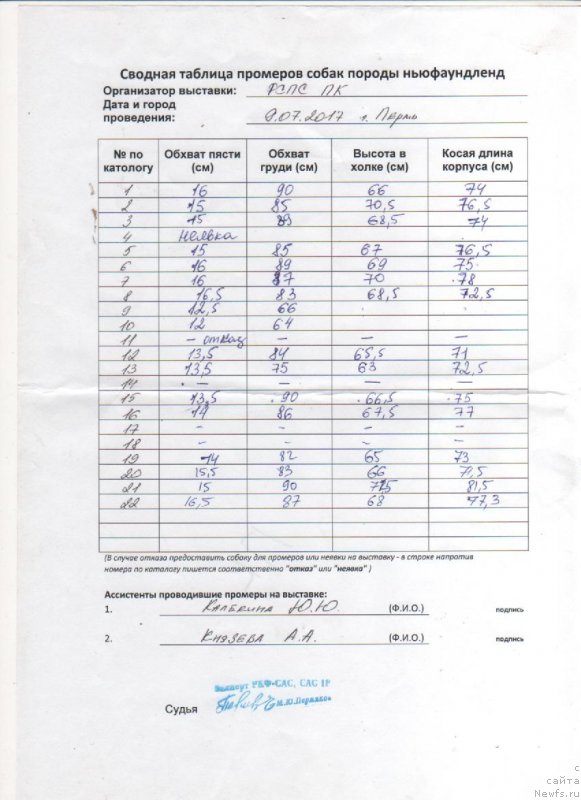 Сводная таблица промеров собак породы ньюфаундленд
Организатор выставки: РСЛС ПК
Дата и город
проведения: 9.07.2017 г. Пермь
№ по каталогу Обхват пясти (см) Обхват груди (см) Высота в холке (см) Косая длина корпуса (см)
1 16 90 66 74
2 15 85 70,5 76,5
3 15 89 68,5 74
4 неявка
5 15 85 67 76,5
6 16 89 69 75
7 16 87 70 78
8 16,5 83 68,5 72,5
9 12,5 66
10 12 64
11 – отказ – – –
12 13,5 84 65,5 71
13 13,5 75 63 72,5
14 – – – –
15 13,5 90 66,5 75
16 14 86 67,5 77
17 – – – –
18 – – – –
19 14 82 65 73
20 15,5 83 66 71,5
21 15 90 71,5 81,5
22 16,5 87 68 77,3
(В случае отказа предоставить собаку для промеров или неявки на выставку - в строке напротив
номера по каталогу пишется соответственно "отказ" или "неявка")
Ассистенты проводившие промеры на выставке:
1. Калегина Ю.Ю. (Ф.И.О.) подпись
2. Князева А.А. (Ф.И.О.) подпись
Эксперт РКФ-CAC, CAC 1P
Судья М.Ю.Пермяков
с
сайта
Newfs.ru